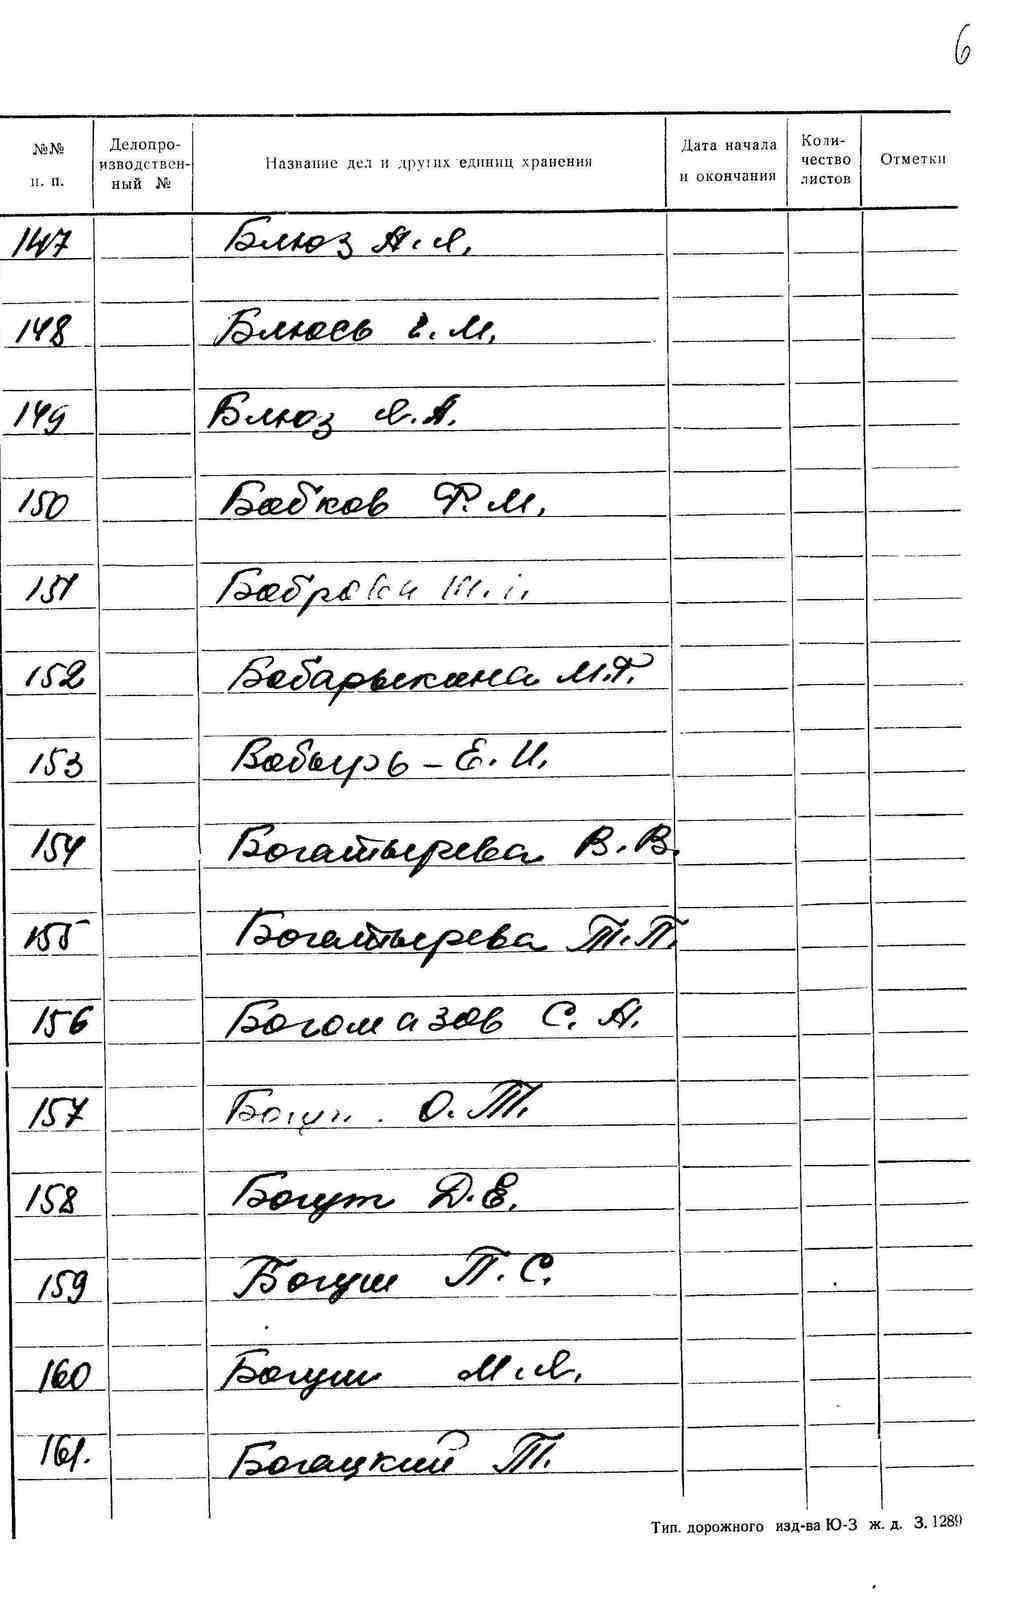 6
№№ п. п. Делопро-изводствен-ный № Название дел и других единиц хранения Дата начала и окончания Коли-чество листов Отметки
147 Блюз А. Я.
148 Блюсь М.
149 Блюз Я. А.
150 Бобков Ф. М.
151
152 Бобарыкина М. Г.
153 Бобырь – Е. И.
154 Богатырева В. В.
155 Богатырева Т. П.
156 Богомазов С. А.
157 О. Т.
158 Богут Д. Е.
159 Богуш П. С.
160 Богуш М. Я.
161. Богацкий Т.
Тип. дорожного изд-ва Ю-З ж. д. З. 1289